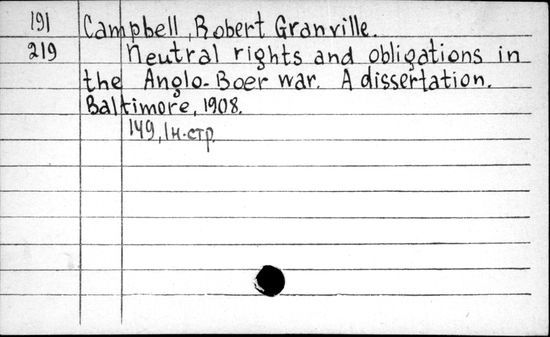 191 Campbell, Robert Granville.
219 Neutral rights and obligations in
the Anglo-Boer war. A dissertation.
Baltimore, 1908.
149, 1 н.стр.